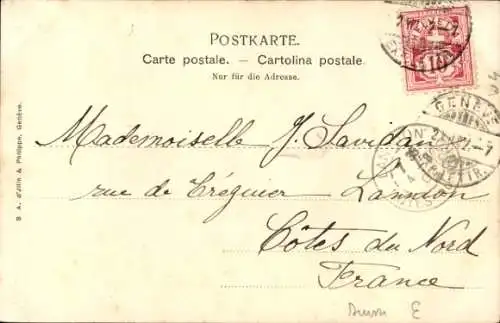 POSTKARTE.
Carte postale. — Cartolina postale.
Nur für die Adresse.
10
GENÈVE
Mademoiselle J. Savidan
rue de Tréguier Lannion
Côtes du Nord
France
E
S. A. d'Jllin & Philippe, Genève.